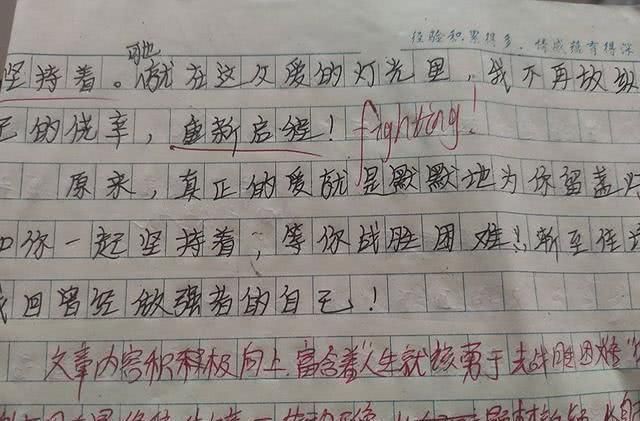 经验积累得多，情感孕育得深
坚持着。就在这父爱的灯光里，我不再放纵
己的侥幸，重新启程！fighting！
原来，真正的爱就是默默地为你留盏灯
和你一起坚持着，等你战胜困难！渐至佳
我回曾经做强者的自己！
文章内容积极向上，富含着“人生就该勇于去战胜困难”